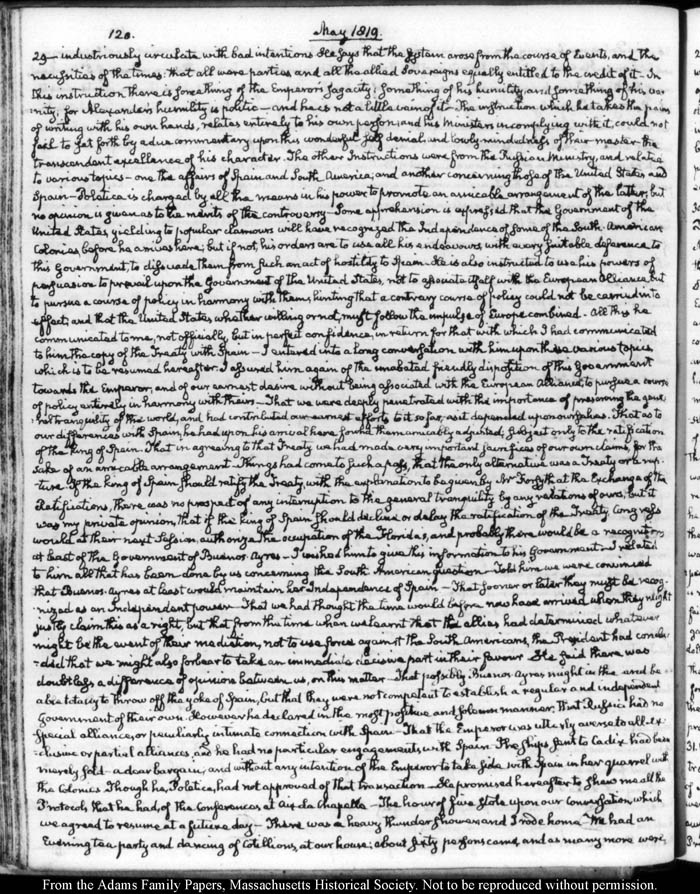 120. May 1819.
29— industriously circulate with bad intentions. He says that the System arose from the course of Events, and the
necessities of the times: that all were parties and all the allied Sovereigns equally entitled to the credit of it— In
this instruction there is something of the Emperor's sagacity; something of his humility, and something of his va-
nity; for Alexander's humility is politic— and he is not a little vain of it— The instruction which he takes the pains
of writing with his own hands, relates entirely to his own person; and his Ministers in complying with it, could not
fail to set forth by a due commentary upon this wonderful self denial, and lowly mindedness of their master the
transcendent excellence of his character. The other Instructions were from the Russian Ministry, and related
to various topics— one the affairs of Spain and South America; and another concerning those of the United States and
Spain— Poletica is charged by all the means in his power to promote an amicable arrangement of the latter; but
no opinion is given as to the merits of the controversy— Some apprehension is expressed that the Government of the
United States, yielding to popular clamours will have recognized the Independence of some of the South-American
Colonies, before he arrives here; but if not, his orders are to use all his endeavours, with every suitable deference, to
this Government, to dissuade them from such an act of hostility to Spain— He is also instructed to use his powers of
persuasion to prevail upon the Government of the United States, not to associate itself with the European Alliance, but
to pursue a course of policy in harmony with them; hinting that a contrary course of policy could not be carried into
effect; and that the United States, whether willing or not, must follow the impulse of Europe combined— All this he
communicated to me, not officially, but in perfect confidence, in return for that with which I had communicated
to him the copy of the Treaty with Spain— I entered into a long conversation with him upon these various topics,
which is to be resumed hereafter. I assured him again of the unabated friendly disposition of this Government
towards the Emperor, and of our earnest desire without being associated with the European Alliance, to pursue a course
of policy entirely in harmony with theirs— That we were deeply penetrated with the importance of preserving the gene-
-ral tranquility of the world, and had contributed our earnest efforts to it so far, as it depended upon ourselves. That as to
our differences with Spain, he had upon his arrival here found them amicably adjusted, subject only to the ratification
of the king of Spain. That in agreeing to that Treaty we had made very important sacrifices of our own claims, for the
sake of an amicable arrangement— Things had come to such a pass, that the only alternative was a Treaty or a rup-
ture. If the king of Spain should ratify the Treaty, with the explanation to be given by Mr Forsyth at the Exchange of the
Ratifications, there was no prospect of any interruption to the general tranquility by any relations of ours, but it
was my private opinion, that if the king of Spain should decline or delay the ratification of the Treaty, Congress
would at their next Session authorize the occupation of the Floridas, and probably there would be a recognition
at least of the Government of Buenos Ayres— I wished him to give this information to his Government— I related
to him all that has been done by us concerning the South American question— Told him we were convinced
that Buenos-ayres at least would maintain her Independence of Spain— That sooner or later they must be recog-
nized as an Independent power— That we had thought the time would before now have arrived when they might
justly claim this as a right, but that from the time when we learnt that the allies had determined whatever
might be the event of their mediation, not to use force against the South Americans, the President had conclu-
-ded that we might also forbear to take an immediate decisive part in their favour— He said there was
doubtless a difference of opinions between us, on this matter— That possibly Buenos Ayres might in the end be
able totally to throw off the yoke of Spain, but that they were not competent to establish a regular and independent
Government of their own. However he declared in the most positive and solemn manner, that Russia had no
special alliance, or peculiarly intimate connection with Spain— That the Emperor was utterly averse to all ex-
clusive or partial alliances, and he had no particular engagements with Spain. The ships sent to Cadiz had been
merely sold— a dear bargain; and without any intention of the Emperor to take side with Spain in her quarrel with
the Colonies. Though he, Poletica, had not approved of that transaction— He promised hereafter to shew me all the
Protocols that he had, of the Conferences at Aix-la-Chapelle— The hour of five stole upon our Conversation, which
we agreed to resume at a future day— There was a heavy thunder shower, and I rode home. We had an
Evening tea party and dancing of Cotillions, at our house; about sixty persons came, and as many more were
From the Adams Family Papers, Massachusetts Historical Society. Not to be reproduced without permission.